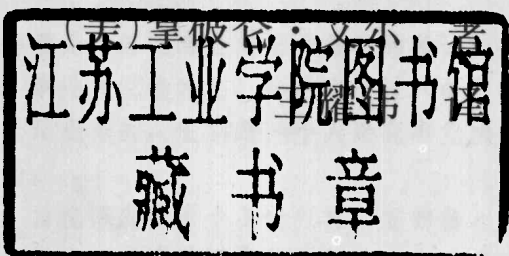 (美)拿破仑·艾尔 著
江苏工业学院图书馆
王耀伟 译
藏书章